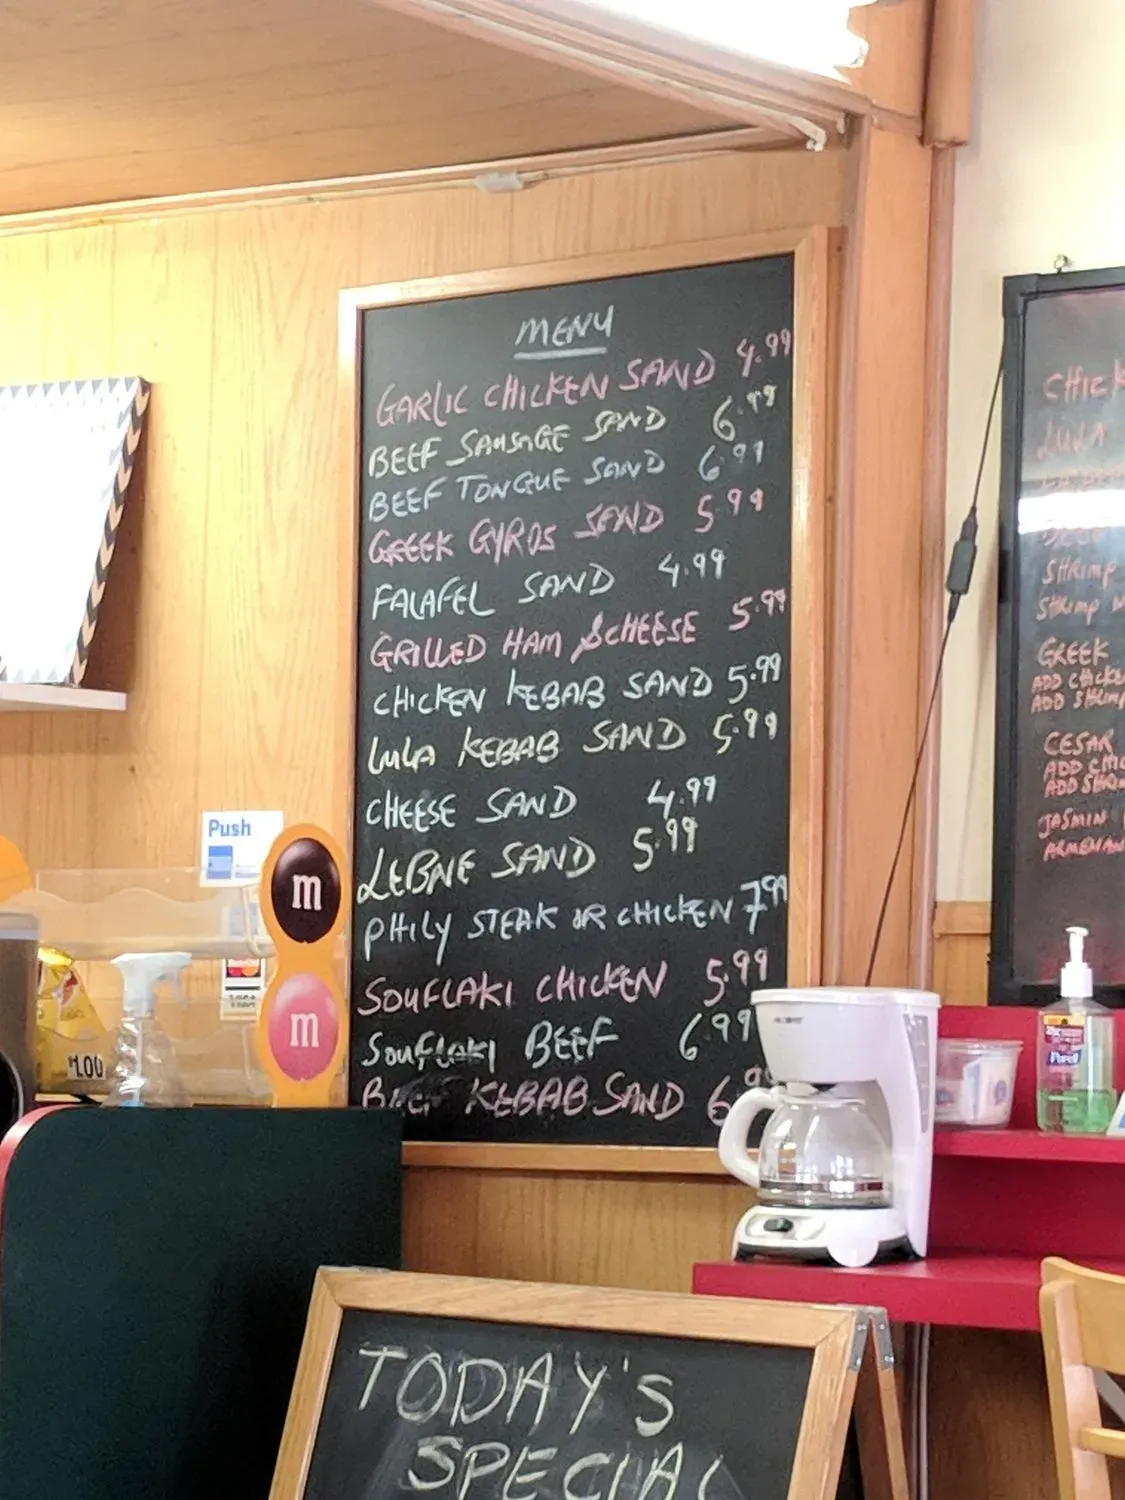 MENU
GARLIC CHICKEN SAND 4.99
BEEF SAUSAGE SAND 6.99
BEEF TONGUE SAND 6.99
GREEK GYROS SAND 5.99
FALAFEL SAND 4.99
GRILLED HAM & CHEESE 5.99
CHICKEN KEBAB SAND 5.99
LULA KEBAB SAND 5.99
CHEESE SAND 4.99
LEBNE SAND 5.99
PHILY STEAK OR CHICKEN 7.99
SOUFLAKI CHICKEN 5.99
SOUFLAKI BEEF 6.99
BEEF KEBAB SAND 6.99
CHICK
LULA
SHRIMP
SHRIMP W
GREEK
ADD CHICKE
ADD SHRIMP
CESAR
ADD CHIC
ADD SHRIM
JASMIN
ARMENIAN
Push
m
m
$1.00
MasterCard
Purell
TODAY'S
SPECIAL